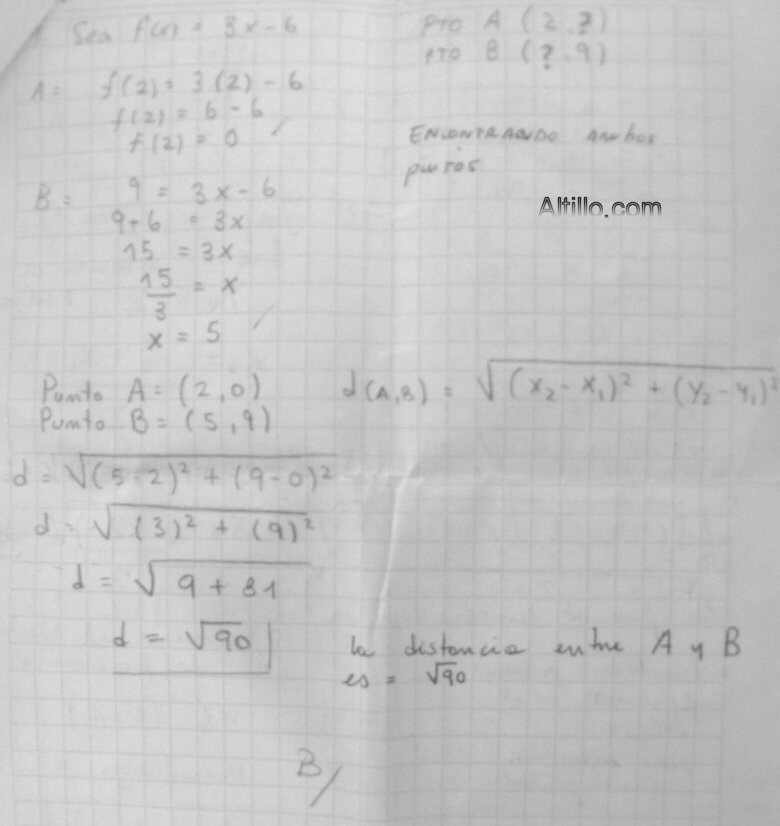 Sea f(x) = 3x - 6
pto A (2, ?)
pto B (?, 9)
A = f(2) = 3(2) - 6
f(2) = 6 - 6
f(2) = 0
ENCONTRANDO ambos
puntos
Altillo.com
B = 9 = 3x - 6
9 + 6 = 3x
15 = 3x
15/3 = x
x = 5
Punto A = (2, 0)
Punto B = (5, 9)
d(A,B) = √(x₂ - x₁)² + (y₂ - y₁)²
d = √(5 - 2)² + (9 - 0)²
d = √(3)² + (9)²
d = √9 + 81
d = √90
la distancia entre A y B
es = √90
B/